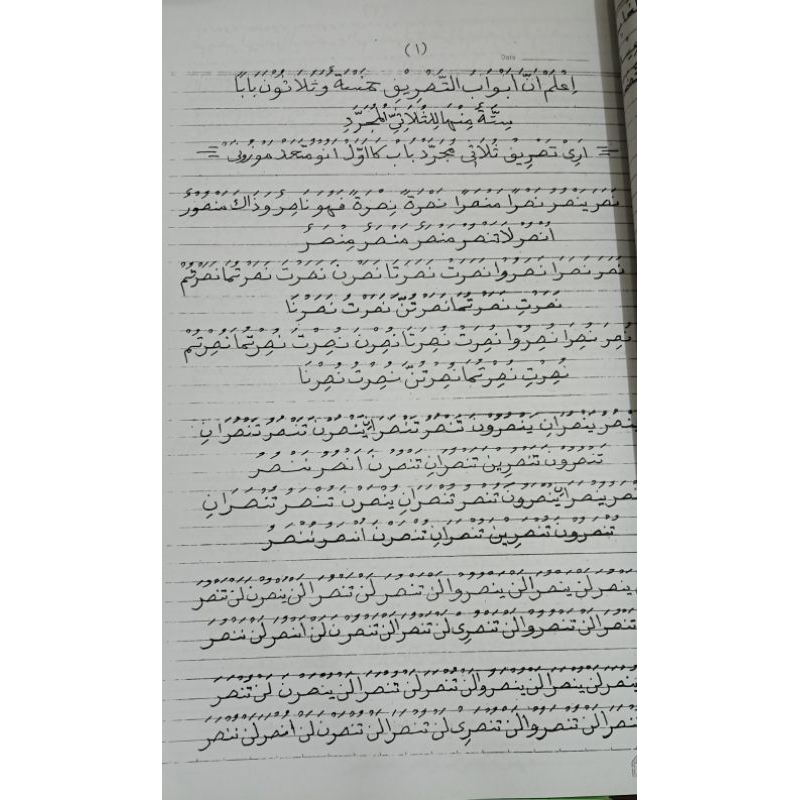 (١)
Date
اِعْلَمْ اَنَّ اَبْوَابَ التَّصْرِيْفِ خَمْسَةٌ وَثَلَاثُوْنَ بَابًا
سِتَّةٌ مِنْهَا لِلثُّلَاثِيِّ الْمُجَرَّدِ
تَصْرِيْفْ ثُلَاثِي مُجَرَّدْ بَابْ كَااَوَّلْ
نَصَرَ يَنْصُرُ نَصْرًا مَنْصَرًا نَصْرَةً نِصْرَةً فَهُوَ نَاصِرٌ وَذَاكَ مَنْصُوْرٌ
اُنْصُرْ لَا تَنْصُرْ مَنْصَرٌ مَنْصَرٌ مِنْصَرٌ
نَصَرَ نَصَرَا نَصَرُوْا نَصَرَتْ نَصَرَتَا نَصَرْنَ نَصَرْتَ نَصَرْتُمَا نَصَرْتُمْ
نَصَرْتِ نَصَرْتُمَا نَصَرْتُنَّ نَصَرْتُ نَصَرْنَا
نُصِرَ نُصِرَا نُصِرُوْا نُصِرَتْ نُصِرَتَا نُصِرْنَ نُصِرْتَ نُصِرْتُمَا نُصِرْتُمْ
نُصِرْتِ نُصِرْتُمَا نُصِرْتُنَّ نُصِرْتُ نُصِرْنَا
يَنْصُرُ يَنْصُرَانِ يَنْصُرُوْنَ تَنْصُرُ تَنْصُرَانِ يَنْصُرْنَ تَنْصُرُ تَنْصُرَانِ
تَنْصُرُوْنَ تَنْصُرِيْنَ تَنْصُرَانِ تَنْصُرْنَ اَنْصُرُ نَنْصُرُ
يُنْصَرُ يُنْصَرَانِ يُنْصَرُوْنَ تُنْصَرُ تُنْصَرَانِ يُنْصَرْنَ تُنْصَرُ تُنْصَرَانِ
تُنْصَرُوْنَ تُنْصَرِيْنَ تُنْصَرَانِ تُنْصَرْنَ اُنْصَرُ نُنْصَرُ
يَنْصُرَ لَنْ يَنْصُرَا لَنْ يَنْصُرُوْا لَنْ تَنْصُرَ لَنْ تَنْصُرَا لَنْ يَنْصُرْنَ لَنْ تَنْصُرَ
تَنْصُرَا لَنْ تَنْصُرُوْا لَنْ تَنْصُرِيْ لَنْ تَنْصُرَا لَنْ تَنْصُرْنَ لَنْ اَنْصُرَ لَنْ نَنْصُرَ
يُنْصَرَ لَنْ يُنْصَرَا لَنْ يُنْصَرُوْا لَنْ تُنْصَرَ لَنْ تُنْصَرَا لَنْ يُنْصَرْنَ لَنْ تُنْصَرَ
تُنْصَرَا لَنْ تُنْصَرُوْا لَنْ تُنْصَرِيْ لَنْ تُنْصَرَا لَنْ تُنْصَرْنَ لَنْ اُنْصَرَ لَنْ نُنْصَرَ